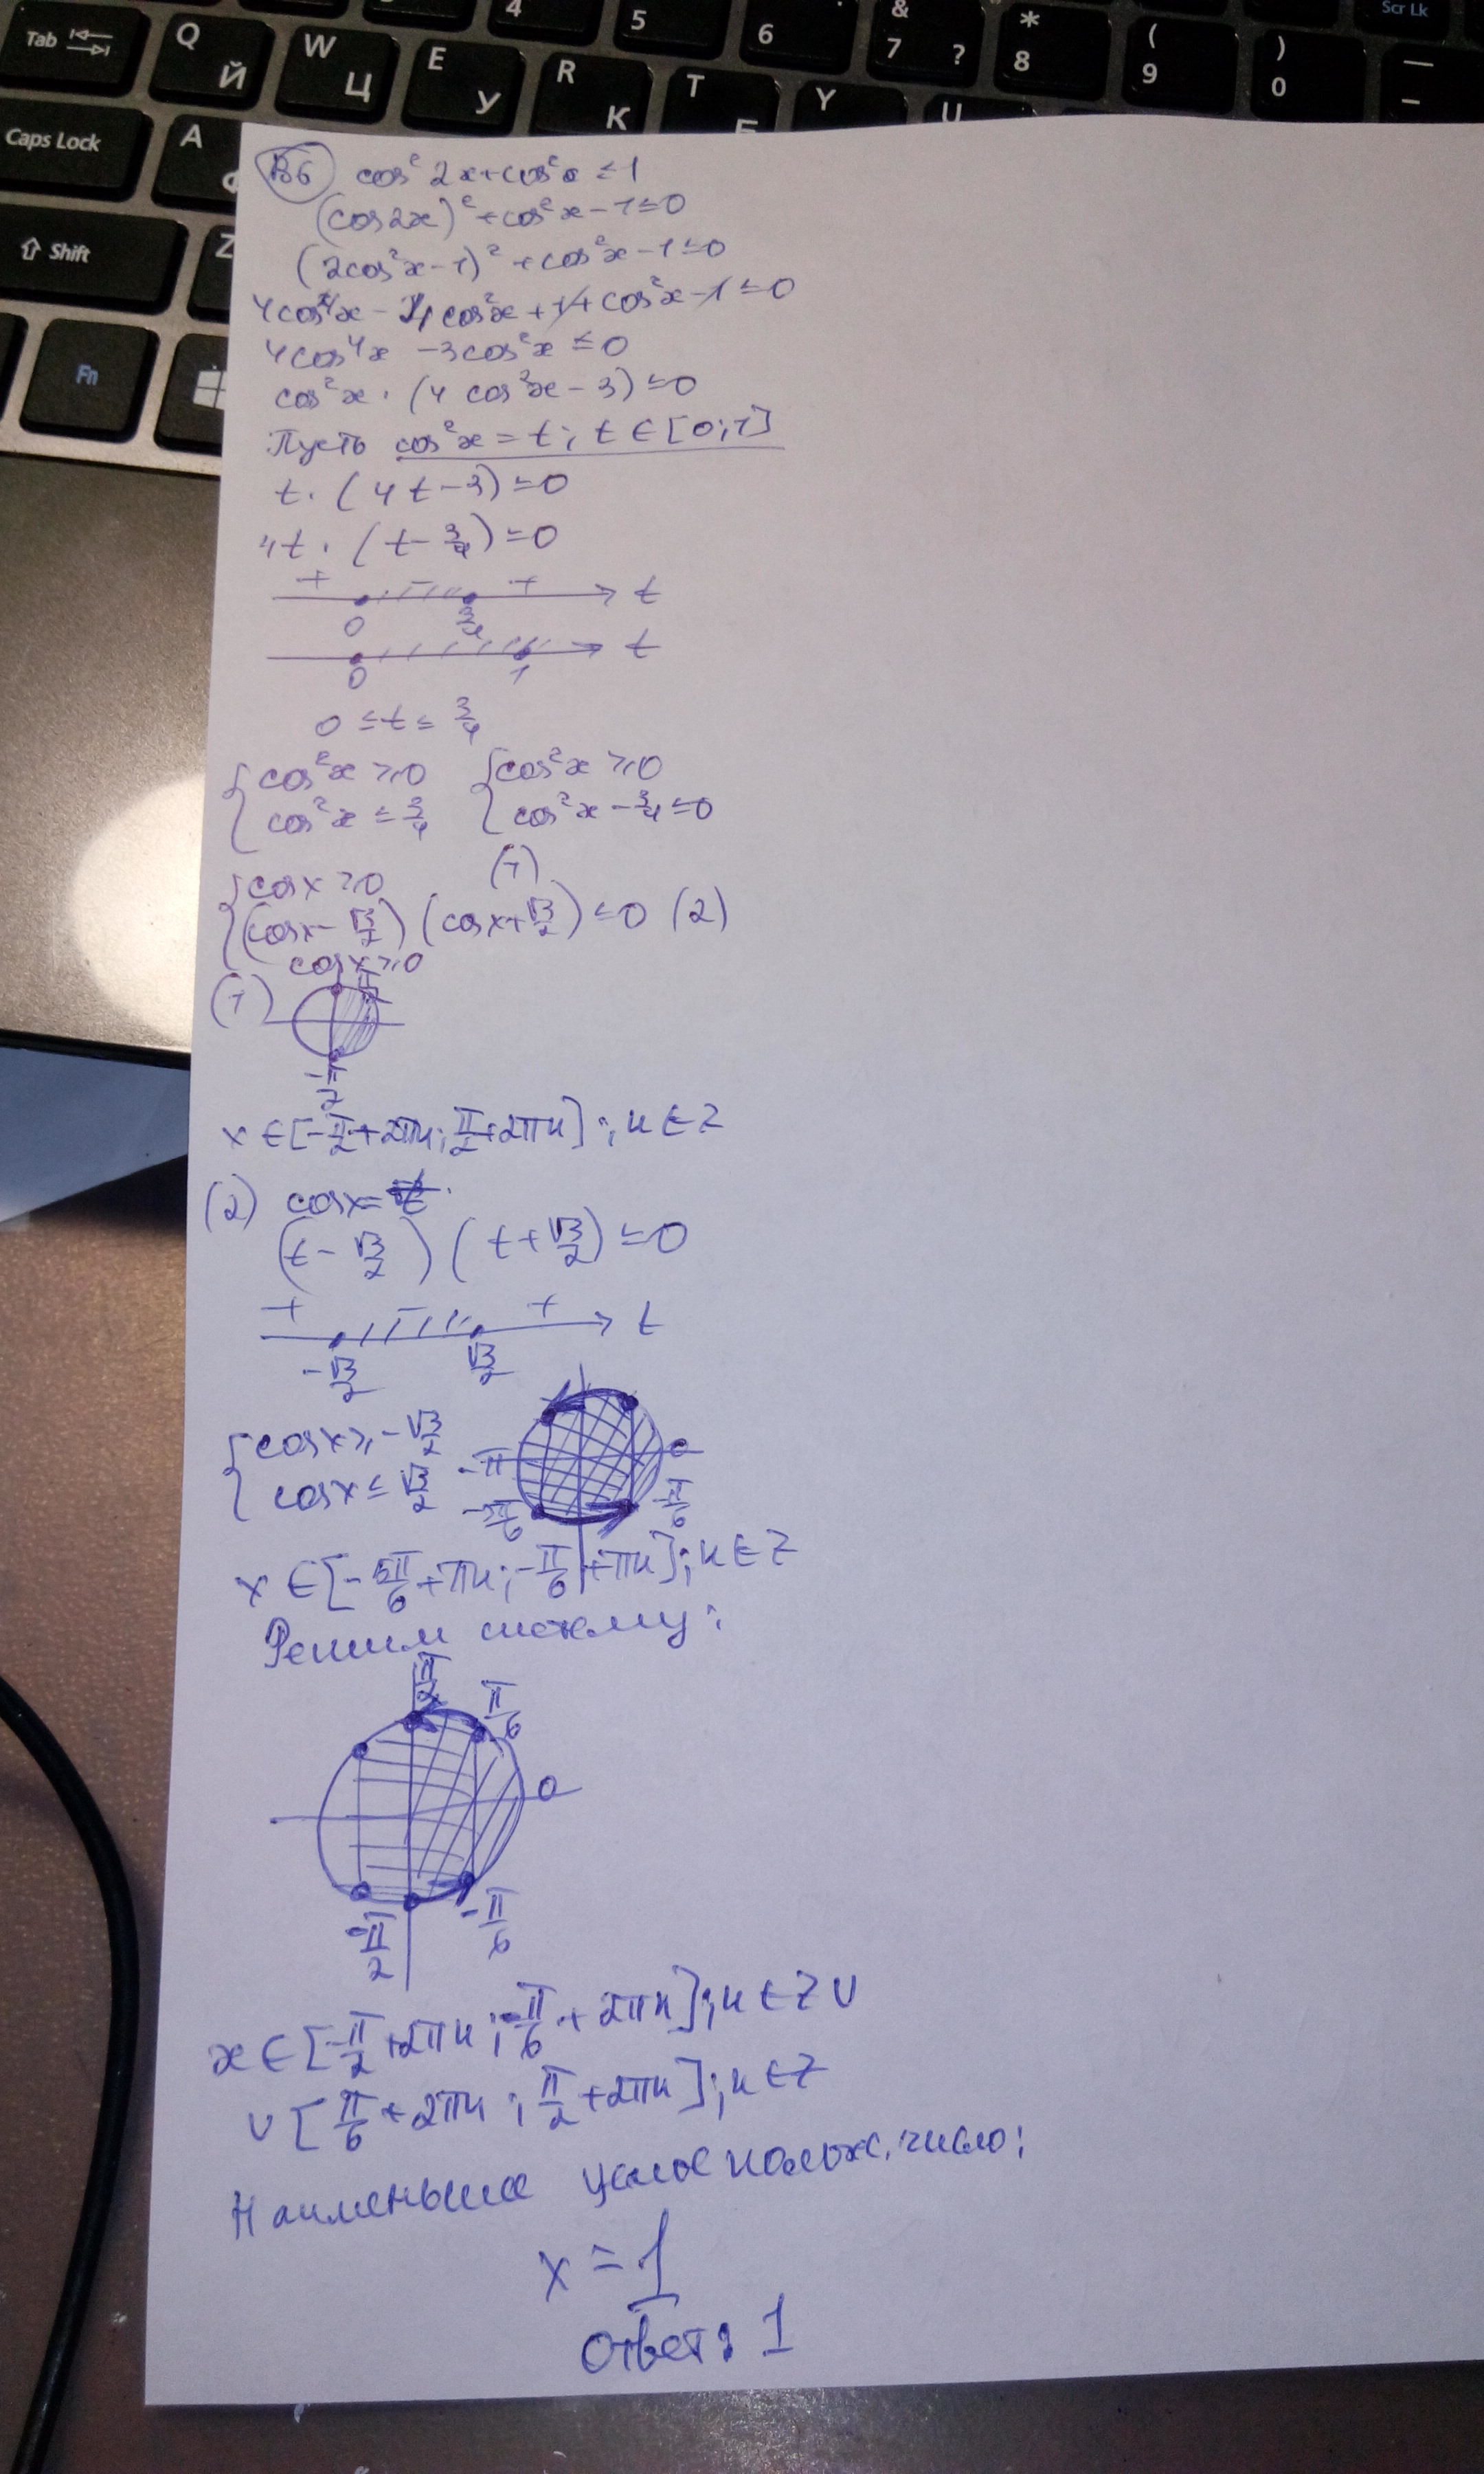 4 5 6 & 7 ? * 8 ( 9 ) 0 Scr Lk
Tab Q Й W Ц E У R К T Y U
Caps Lock A
Shift Z
Fn
B6 cos² 2x + cos² x ≤ 1
(cos 2x)² + cos² x - 1 ≤ 0
(2cos² x - 1)² + cos² x - 1 ≤ 0
4cos⁴x - 4cos²x + 1 + cos²x - 1 ≤ 0
4cos⁴x - 3cos²x ≤ 0
cos²x · (4 cos²x - 3) ≤ 0
Пусть cos²x = t; t ∈ [0;1]
t · (4t - 3) ≤ 0
4t · (t - 3/4) ≤ 0
+ - + t
0 3/4
t
0 1
0 ≤ t ≤ 3/4
{ cos²x ≥ 0 { cos²x ≥ 0
cos²x ≤ 3/4 cos²x - 3/4 ≤ 0
{ cos x ≥ 0 (1)
(cos x - √3/2) (cos x + √3/2) ≤ 0 (2)
cos x ≥ 0
(1) π/2
-π/2
x ∈ [-π/2 + 2πn; π/2 + 2πn]; n ∈ Z
(2) cos x = t
(t - √3/2) (t + √3/2) ≤ 0
+ - + t
-√3/2 √3/2
{ cos x ≥ -√3/2 -π 0
cos x ≤ √3/2 -5π/6 -π/6
x ∈ [-5π/6 + πn; -π/6 + πn]; n ∈ Z
Решим систему:
π/2 π/6
0
-π/2 -π/6
x ∈ [-π/2 + 2πn; -π/6 + 2πn]; n ∈ Z ∪
∪ [π/6 + 2πn; π/2 + 2πn]; n ∈ Z
Наименьшее целое полож. число:
x = 1
Ответ: 1